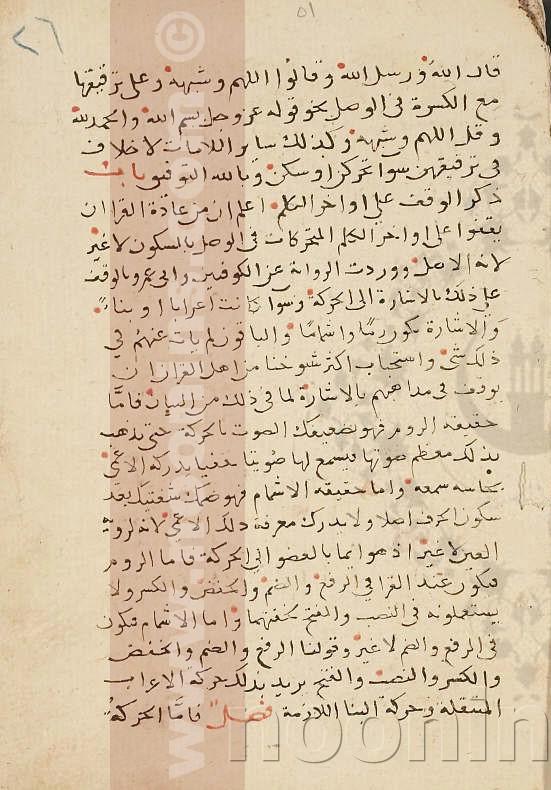 ٥١
٢٦
قال الله و رسل الله و قالوا اللهم و شبهه وعلى ترقيقها
مع الكسرة في الوصل نحو قوله عز وجل بسم الله والحمد لله
و قل اللهم و شبهه وكذلك ساير اللامات لا خلاف
في ترقيقهن سوا تحركن او سكن وبالله التوفيق باب
ذكر الوقف على اواخر الكلم اعلم ان من عادة القرا ان
يقفوا على اواخر الكلم المتحركات في الوصل بالسكون لا غير
لانه الاصل ووردت الرواية عن الكوفيين وابي عمرو بالوقف
على ذلك بالاشارة الى الحركة وسوا كانت اعرابا او بناء
والاشارة تكون روما واشماما والباقون لم يات عنهم في
ذلك شي واستحباب اكثر شيوخنا من اهل القران ان
يوقف في مذاهبهم بالاشارة لما في ذلك من البيان فاما
حقيقة الروم فهو تضعيفك الصوت بالحركة حتى يذهب
بذلك معظم صوتها فيسمع لها صويتا خفيا يدركه الاعمى
بحاسة سمعه واما حقيقة الاشمام فهو ضمك شفتيك بعد
سكون الحرف اصلا ولا يدرك معرفة ذلك الاعمى لانه لروية
العين لا غير اذ هو ايما بالعضو الى الحركة فاما الروم
فيكون عند القرا في الرفع والضم والخفض والكسر ولا
يستعملونه في النصب والفتح لخفتهما واما الاشمام فيكون
في الرفع والضم لا غير وقولنا الرفع والضم والخفض
والكسر والنصب والفتح نريد بذلك حركة الاعراب
المنتقلة وحركة البنا اللازمة فصل فاما الحركة
www.
noonin